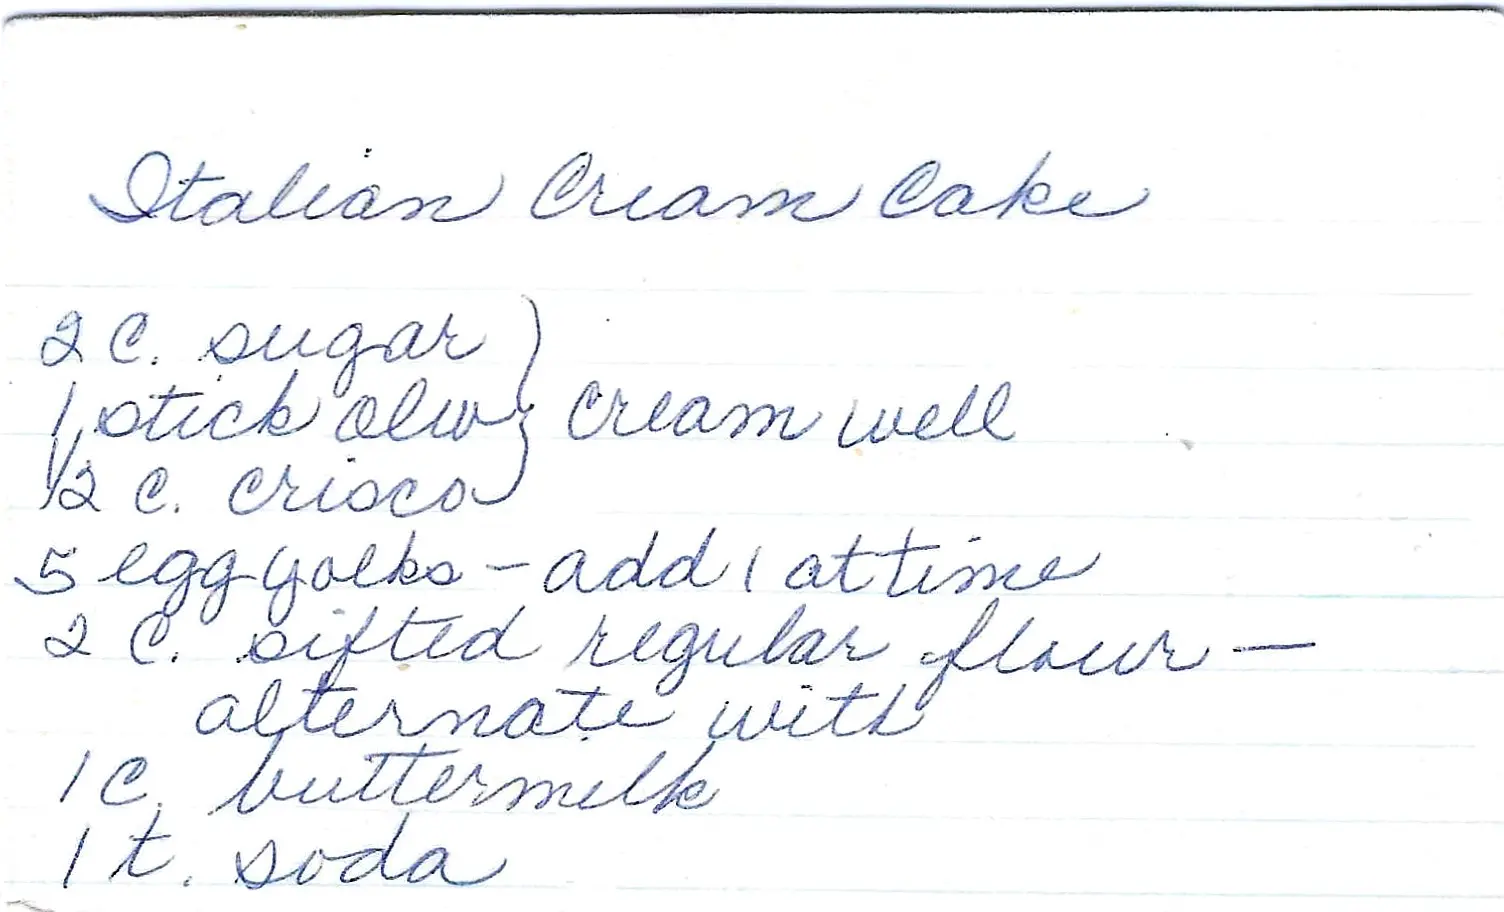 Italian Cream Cake
2 C. sugar
1 stick olw } cream well
1/2 C. crisco
5 egg yolks - add 1 at time
2 C. sifted regular flour —
alternate with
1 C. buttermilk
1 t. soda